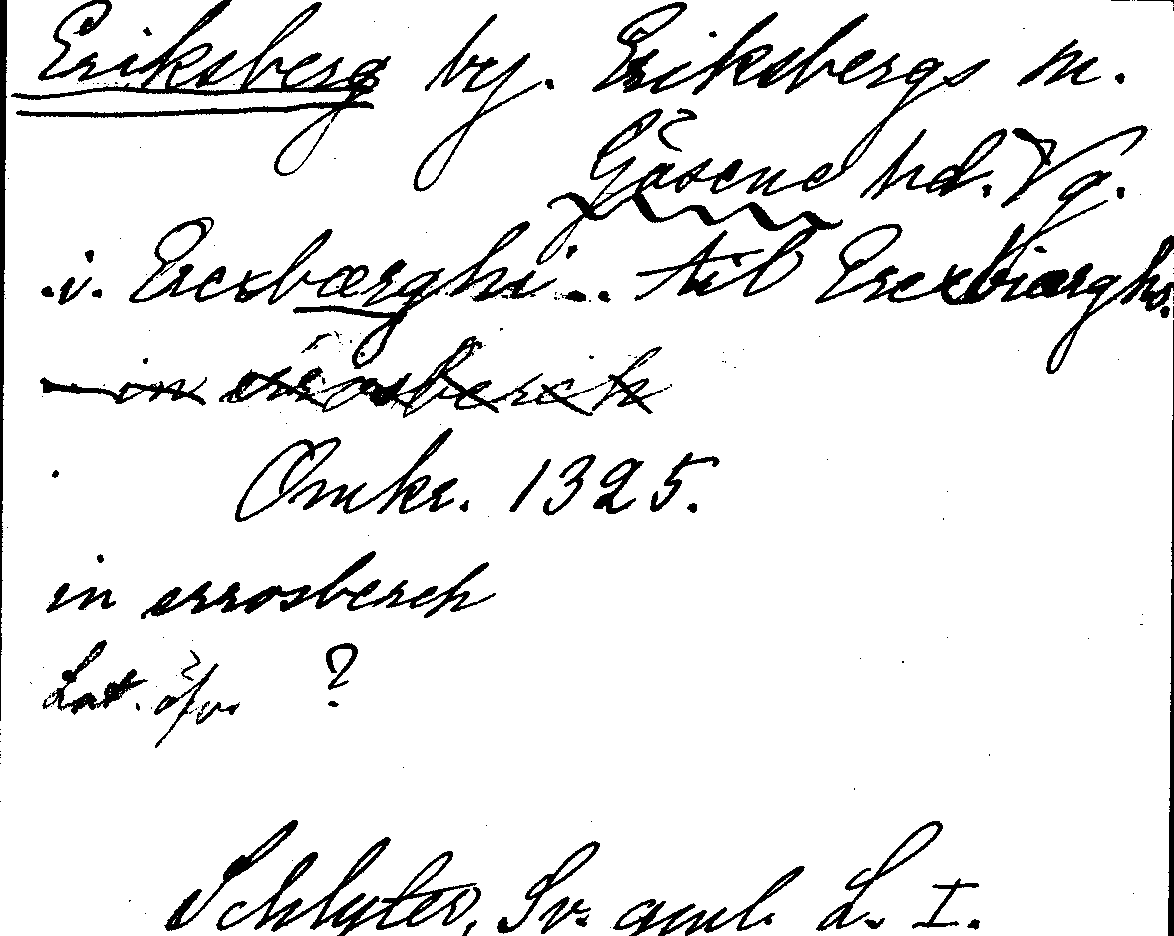 Eriksberg by. Eriksbergs sn.
Gäsene hd. Vg.
.i. Erexbærghi .. til Erexbiærghs.
— in errosberch
Omkr. 1325.
in errosberch
Lat. öfv. ?
Schlyter, Sv. gml. L. I.